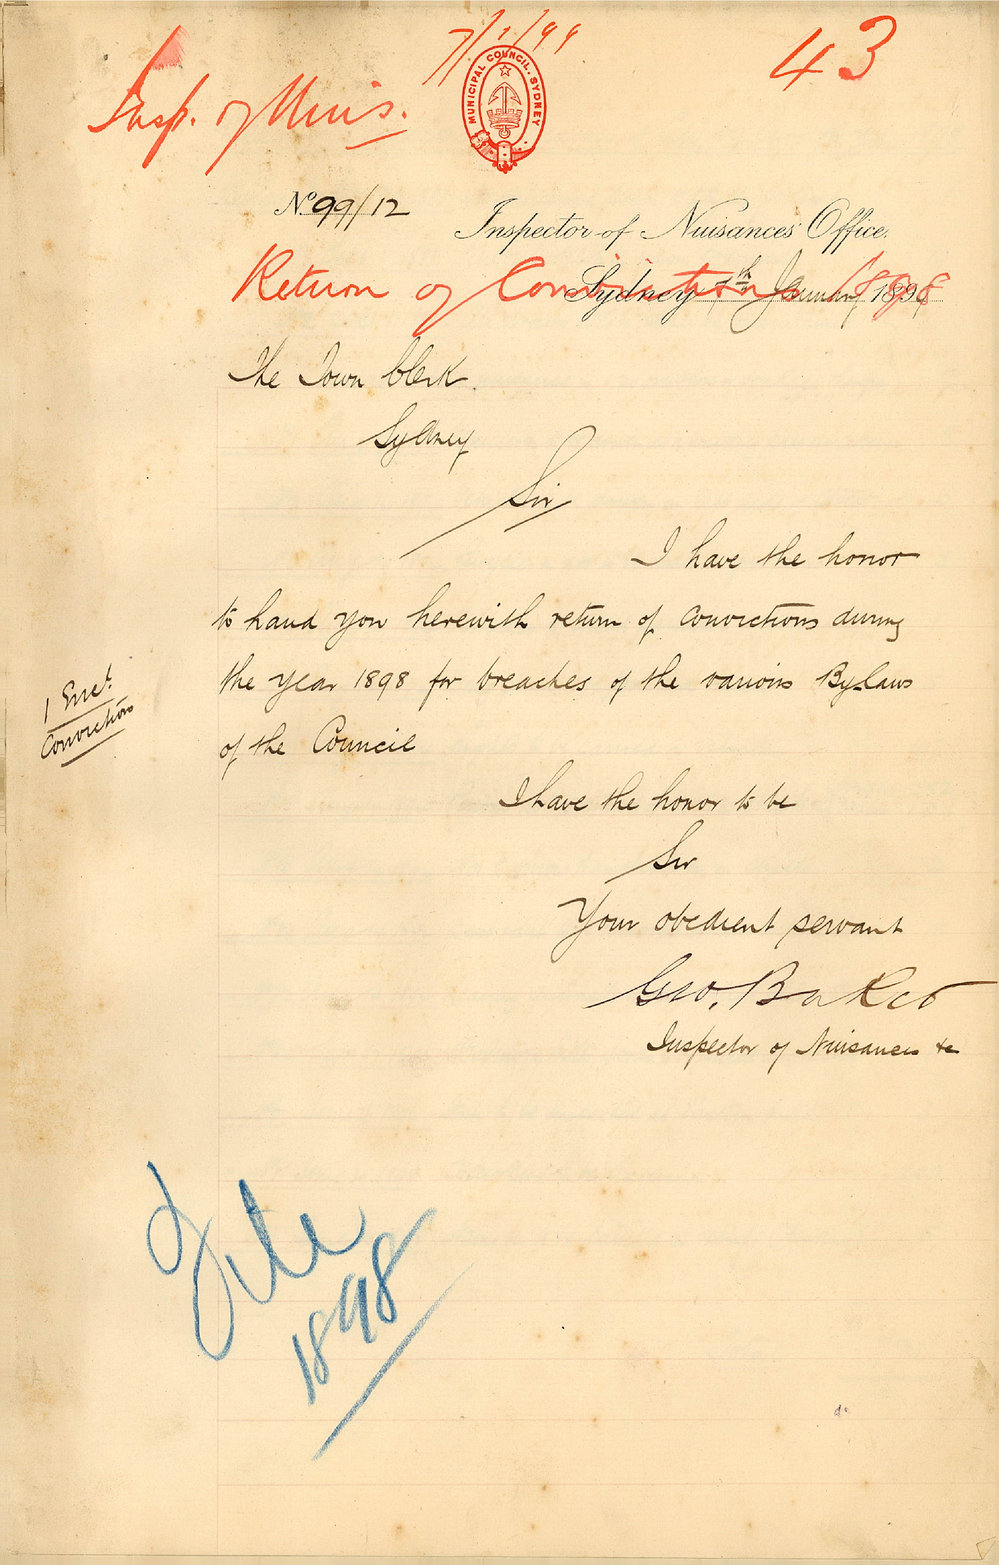 7/1/99
43
Insp. of Nuis.
MUNICIPAL COUNCIL. SYDNEY
No 99/12
Inspector of Nuisances' Office,
Return of Convictions 1898
Sydney 7th January 1899
The Town Clerk.
Sydney
Sir
I have the honor
to hand you herewith return of convictions during
the year 1898 for breaches of the various Bylaws
of the Council
1 Encl.
Convictions
I have the honor to be
Sir
Your obedient servant
Geo. Baker
Inspector of Nuisances &c
File
1898